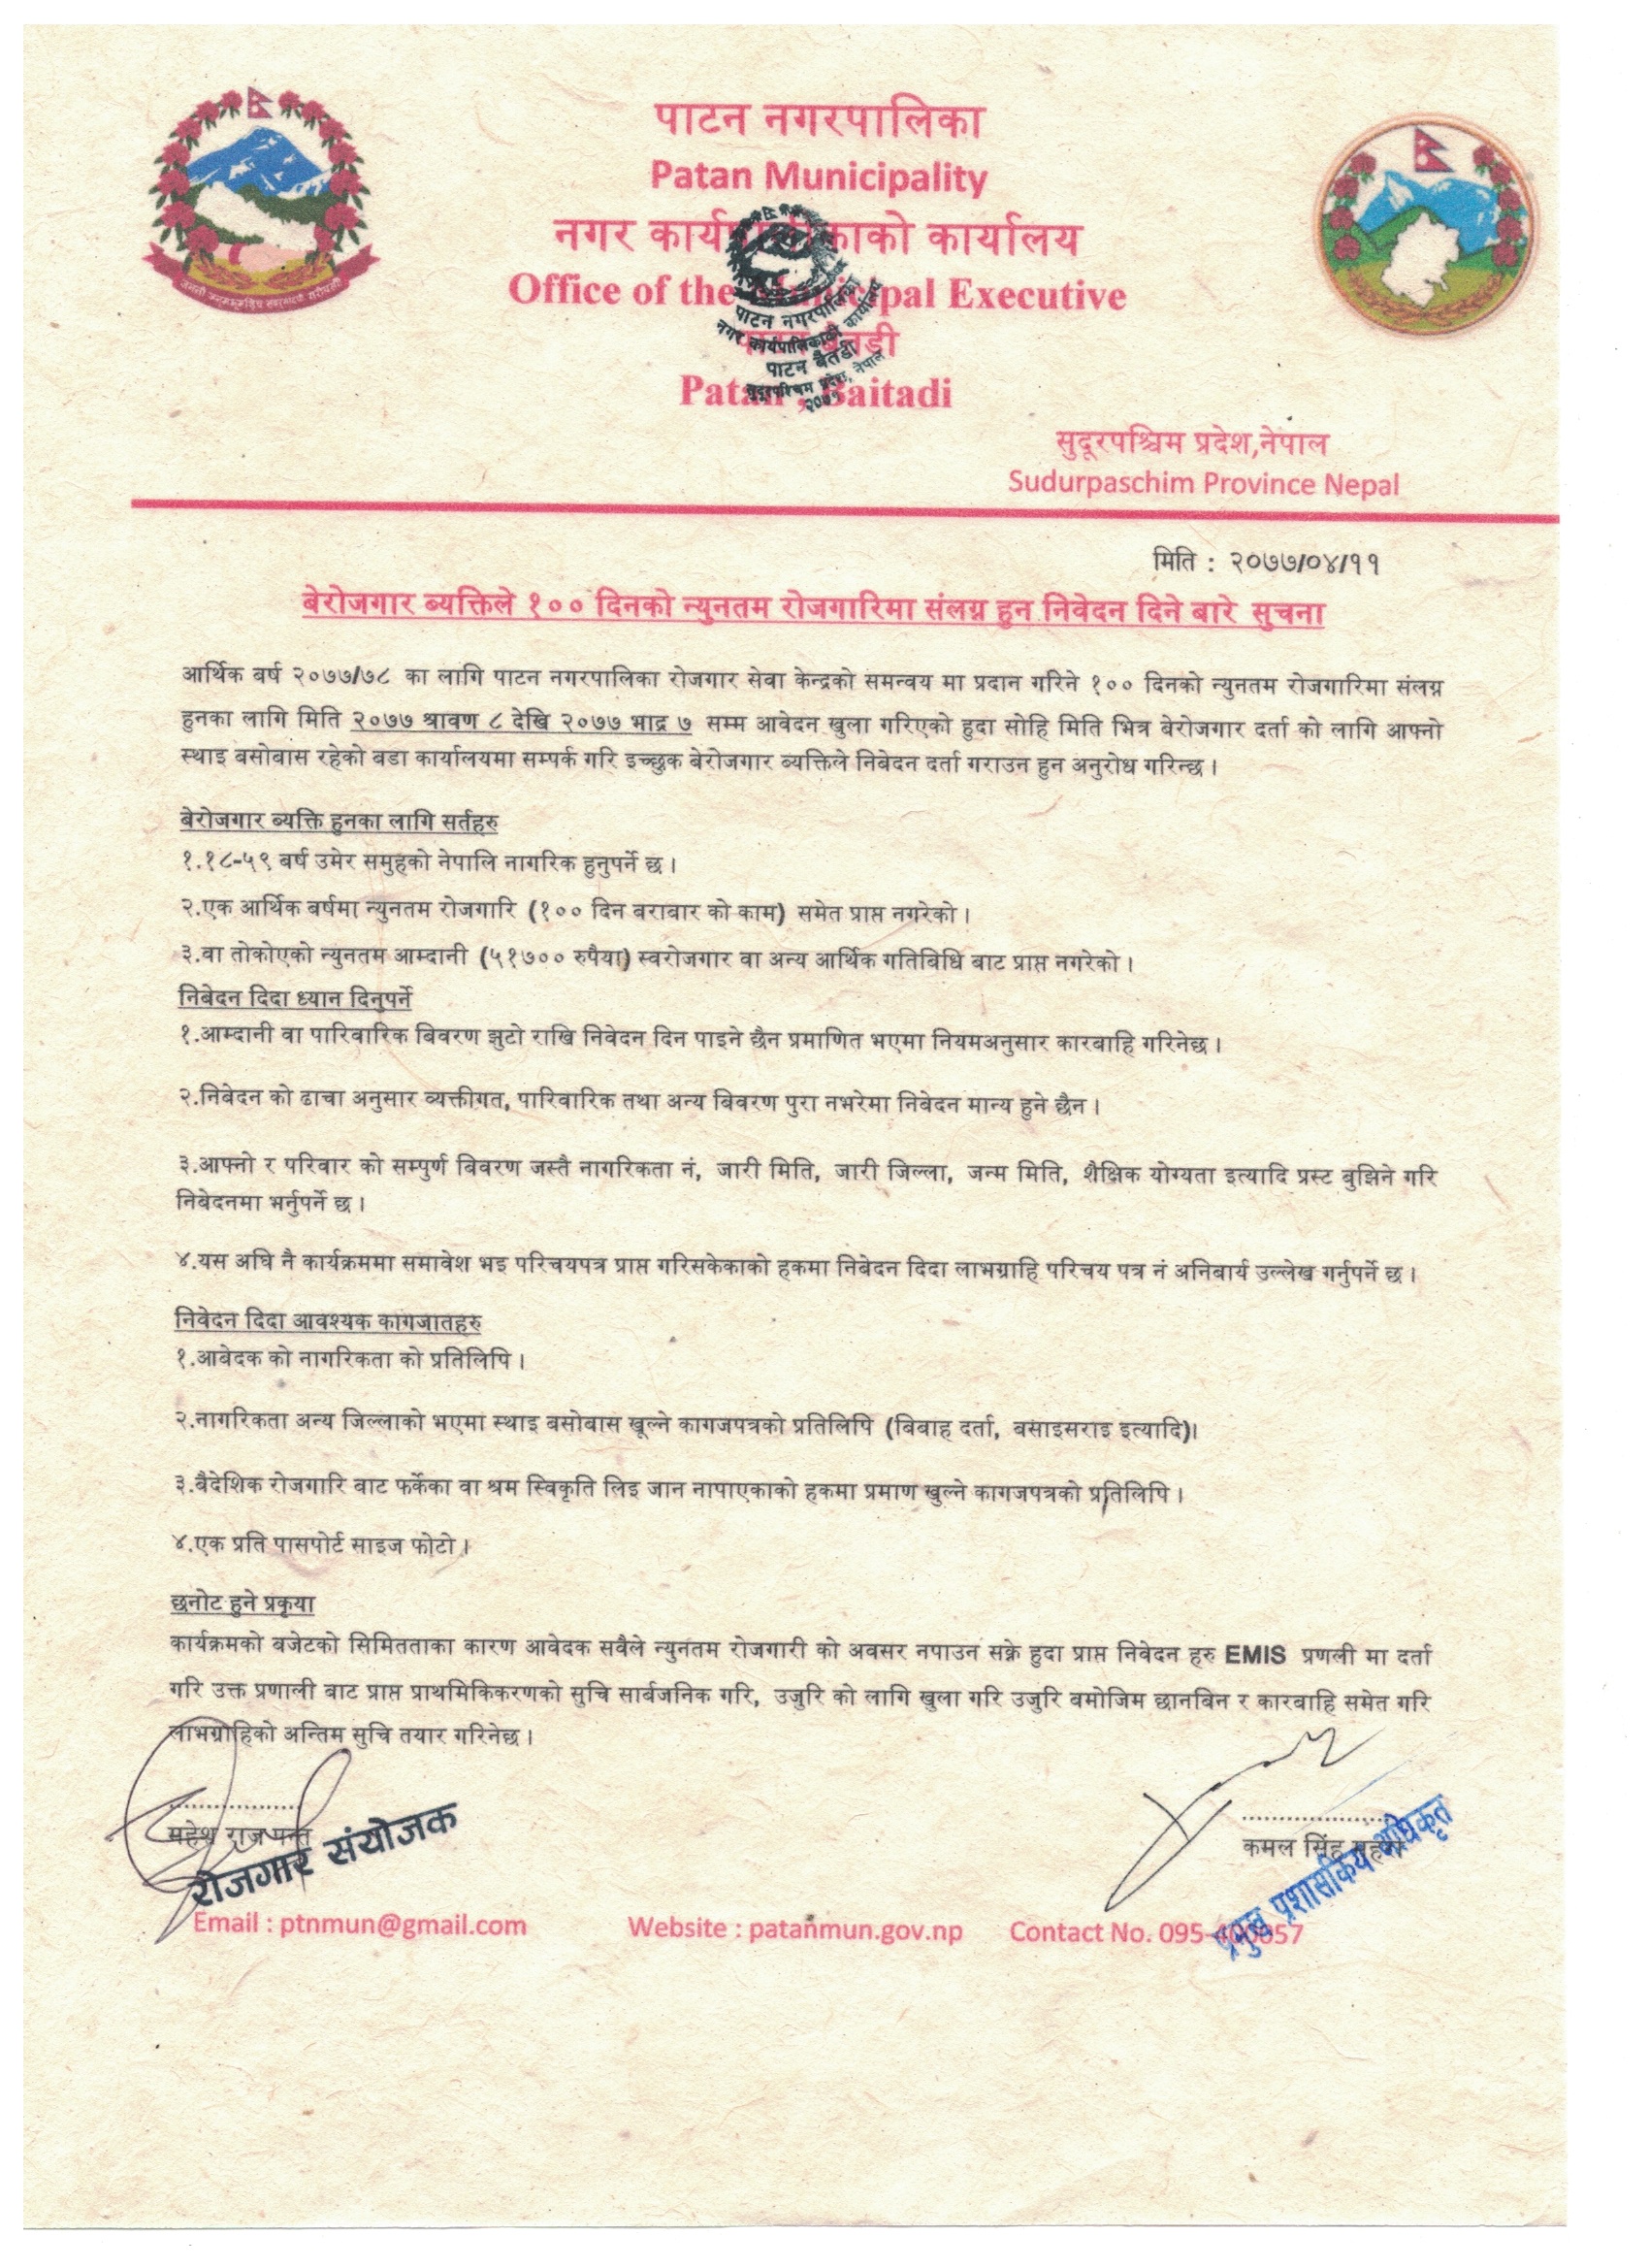 पाटन नगरपालिका
Patan Municipality
नगर कार्यपालिकाको कार्यालय
Office of the Municipal Executive
पाटन बैतडी
Patan , Baitadi
पाटन नगरपालिका
नगर कार्यपालिकाको कार्यालय
पाटन बैतडी
सुदूरपश्चिम प्रदेश, नेपाल
सुदूरपश्चिम प्रदेश,नेपाल
Sudurpaschim Province Nepal
मिति : २०७७/०४/११
बेरोजगार ब्यक्तिले १०० दिनको न्युनतम रोजगारिमा संलग्न हुन निवेदन दिने बारे सुचना
आर्थिक बर्ष २०७७/७८ का लागि पाटन नगरपालिका रोजगार सेवा केन्द्रको समन्वय मा प्रदान गरिने १०० दिनको न्युनतम रोजगारिमा संलग्न
हुनका लागि मिति २०७७ श्रावण ८ देखि २०७७ भाद्र ७ सम्म आवेदन खुला गरिएको हुदा सोहि मिति भित्र बेरोजगार दर्ता को लागि आफ्नो
स्थाइ बसोबास रहेको बडा कार्यालयमा सम्पर्क गरि इच्छुक बेरोजगार ब्यक्तिले निबेदन दर्ता गराउन हुन अनुरोध गरिन्छ ।
बेरोजगार ब्यक्ति हुनका लागि सर्तहरु
१.१८-५९ बर्ष उमेर समुहको नेपालि नागरिक हुनुपर्ने छ ।
२.एक आर्थिक बर्षमा न्युनतम रोजगारि (१०० दिन बराबार को काम) समेत प्राप्त नगरेको ।
३.वा तोकोएको न्युनतम आम्दानी (५१७०० रुपैया) स्वरोजगार वा अन्य आर्थिक गतिबिधि बाट प्राप्त नगरेको ।
निबेदन दिदा ध्यान दिनुपर्ने
१.आम्दानी वा पारिवारिक बिवरण झुटो राखि निवेदन दिन पाइने छैन प्रमाणित भएमा नियमअनुसार कारबाहि गरिनेछ ।
२.निबेदन को ढाचा अनुसार व्यक्तीगत, पारिवारिक तथा अन्य बिवरण पुरा नभरेमा निबेदन मान्य हुने छैन ।
३.आफ्नो र परिवार को सम्पुर्ण बिवरण जस्तै नागरिकता नं, जारी मिति, जारी जिल्ला, जन्म मिति, शैक्षिक योग्यता इत्यादि प्रस्ट बुझिने गरि
निबेदनमा भर्नुपर्ने छ ।
४.यस अघि नै कार्यक्रममा समावेश भइ परिचयपत्र प्राप्त गरिसकेकाको हकमा निबेदन दिदा लाभग्राहि परिचय पत्र नं अनिबार्य उल्लेख गर्नुपर्ने छ ।
निवेदन दिदा आवश्यक कागजातहरु
१.आबेदक को नागरिकता को प्रतिलिपि ।
२.नागरिकता अन्य जिल्लाको भएमा स्थाइ बसोबास खूल्ने कागजपत्रको प्रतिलिपि (बिबाह दर्ता, बसाइसराइ इत्यादि)।
३.बैदेशिक रोजगारि बाट फर्केका वा श्रम स्विकृति लिइ जान नापाएकाको हकमा प्रमाण खुल्ने कागजपत्रको प्रतिलिपि ।
४.एक प्रति पासपोर्ट साइज फोटो ।
छनोट हुने प्रकृया
कार्यक्रमको बजेटको सिमितताका कारण आवेदक सवैले न्युनतम रोजगारी को अवसर नपाउन सक्ने हुदा प्राप्त निवेदन हरु EMIS प्रणली मा दर्ता
गरि उक्त प्रणाली बाट प्राप्त प्राथमिकिकरणको सुचि सार्बजनिक गरि, उजुरि को लागि खुला गरि उजुरि बमोजिम छानबिन र कारबाहि समेत गरि
लाभग्राहिको अन्तिम सुचि तयार गरिनेछ ।
..................
महेश राज पन्त
रोजगार संयोजक
....................
कमल सिंह
प्रमुख प्रशासकिय अधिकृत
Email : ptnmun@gmail.com Website : patanmun.gov.np Contact No.